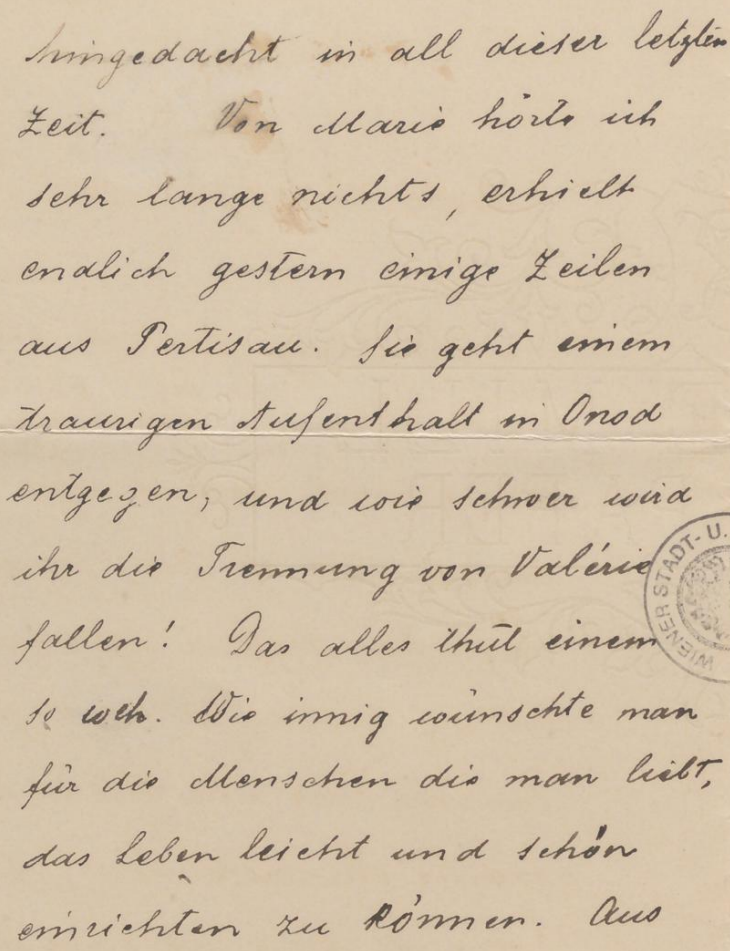 hingedacht in all dieser letzten
Zeit. Von Marie hörte ich
sehr lange nichts, erhielt
endlich gestern einige Zeilen
aus Pertisau. Sie geht einem
traurigen Aufenthalt in Onod
entgegen, und wie schwer wird
ihr die Trennung von Valérie
fallen! Das alles thut einem
so weh. Wie innig wünschte man
für die Menschen die man liebt,
das Leben leicht und schön
einrichten zu können. Aus
WIENER STADT- U.